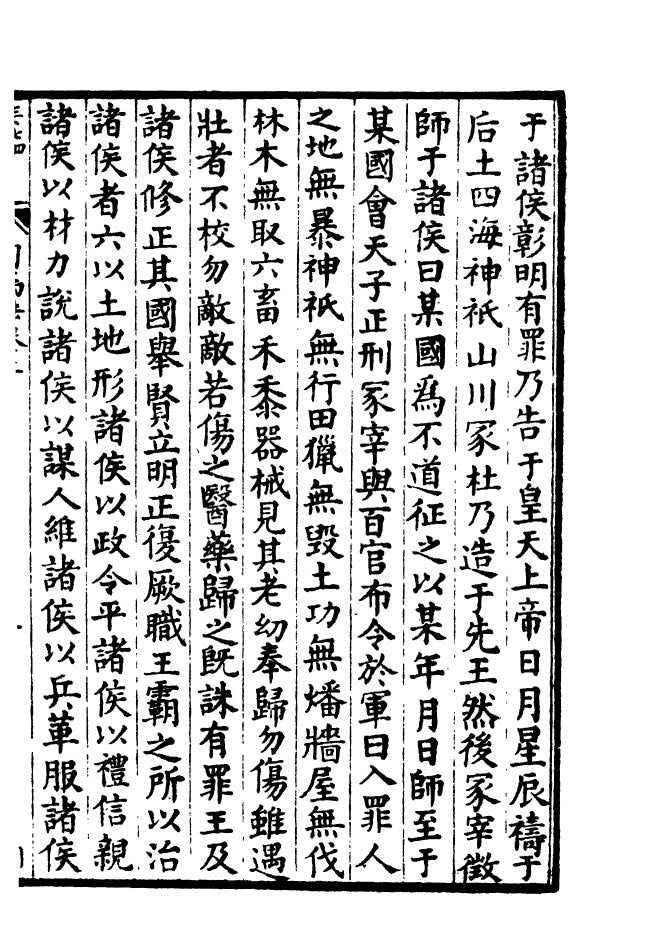 于諸侯彰明有罪乃告于皇天上帝日月星辰禱于
后土四海神祇山川冢社乃造于先王然後冢宰徵
師于諸侯曰某國爲不道征之以某年月日師至于
某國會天子正刑冢宰與百官布令於軍曰入罪人
之地無暴神祇無行田獵無毀土功無燔牆屋無伐
林木無取六畜禾黍器械見其老幼奉歸勿傷雖遇
壯者不校勿敵敵若傷之醫藥歸之旣誅有罪王及
諸侯修正其國舉賢立明正復厥職王霸之所以治
諸侯者六以土地形諸侯以政令平諸侯以禮信親
諸侯以材力說諸侯以謀人維諸侯以兵革服諸侯